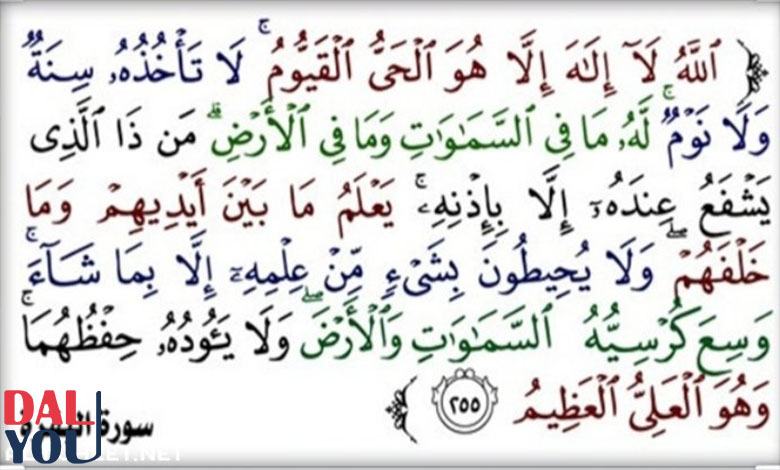 ﴿ ٱللَّهُ لَآ إِلَٰهَ إِلَّا هُوَ ٱلْحَىُّ ٱلْقَيُّومُ ۚ لَا تَأْخُذُهُۥ سِنَةٌ
وَلَا نَوْمٌ ۚ لَّهُۥ مَا فِى ٱلسَّمَٰوَٰتِ وَمَا فِى ٱلْأَرْضِ ۗ مَن ذَا ٱلَّذِى
يَشْفَعُ عِندَهُۥٓ إِلَّا بِإِذْنِهِۦ ۚ يَعْلَمُ مَا بَيْنَ أَيْدِيهِمْ وَمَا
خَلْفَهُمْ ۖ وَلَا يُحِيطُونَ بِشَىْءٍ مِّنْ عِلْمِهِۦٓ إِلَّا بِمَا شَآءَ ۚ
وَسِعَ كُرْسِيُّهُ ٱلسَّمَٰوَٰتِ وَٱلْأَرْضَ ۖ وَلَا يَـُٔودُهُۥ حِفْظُهُمَا ۚ
وَهُوَ ٱلْعَلِىُّ ٱلْعَظِيمُ ٢٥٥ ﴾
سورة البقرة
DAL
YOU